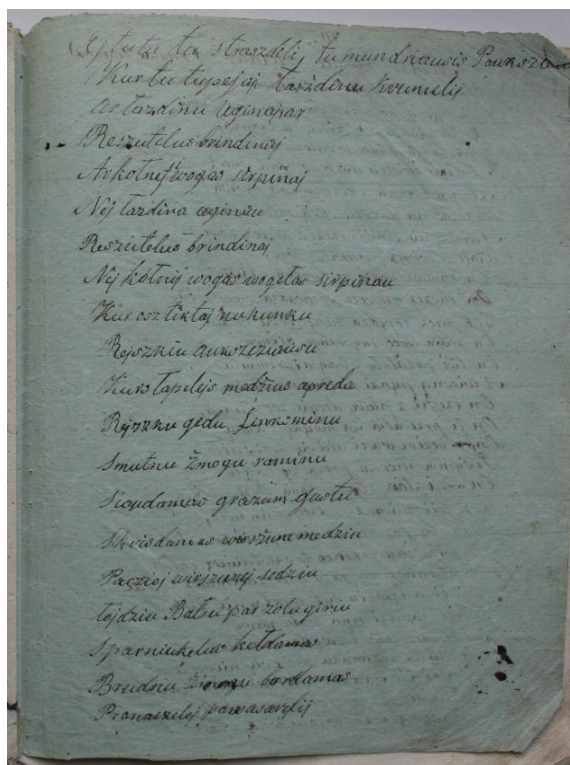 tu straszdelij tu mundriausis
Kur tu tupejaj Łazdinu Krumelij
Ar Łazdinu Uginajar
Reszutelus brindinaj
Ar kołnij wogas sirpinaj
Nej łazdina uginau
Reszutelus brindinaj
Nej kołnij wogas wogełas sirpinau
Kur osz tiktaj nukunku
Rejszkiu aukszcziausu
Kurs łapilejs medžius apreda
gedu Linksminu
Smutnu žmogu raminu
grazum gustu
Skrisdamas wirszum medziu
Paczioj wirszunej sedziu
Łejdziu Bałsu par zolu giriu
Sparniukelus kełdamas
Breudsu bardamas
Pranaszelej pawasarylij